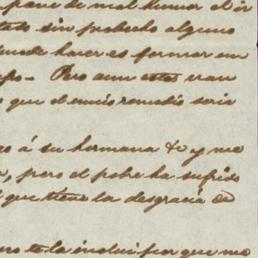 pone de mal humor el ir
tado sin probecho alguno
puede hacer es formar un
po. Pero aun estos van
o que el unico remedio seria
go á su hermana &c y me
a, pero el pobre ha sufrido
l que tiene la desgracia de
no te la inclui por que me